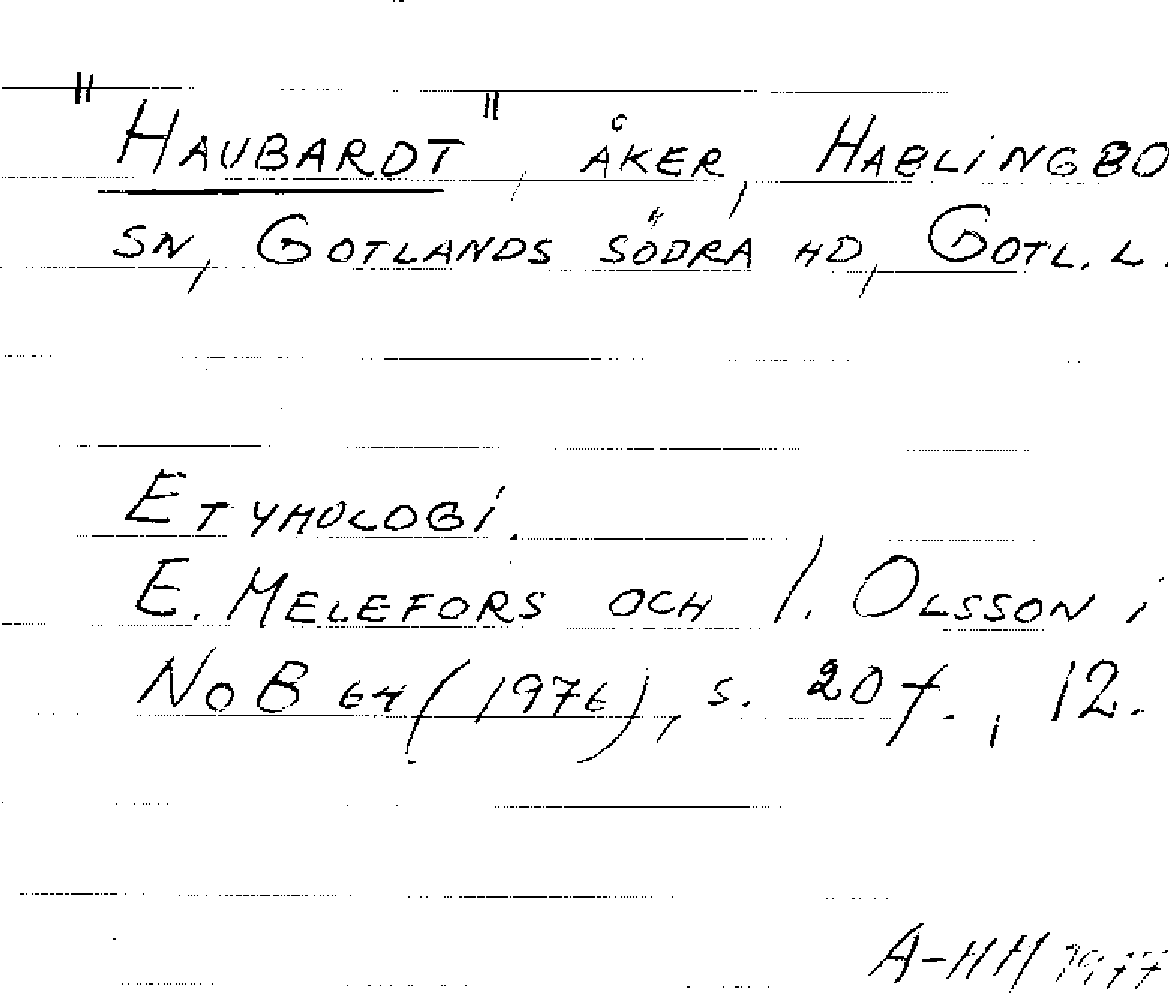 "HAUBARDT", ÅKER, HABLINGBO
SN, GOTLANDS SÖDRA HD, GOTL. L.
ETYMOLOGI.
E. MELEFORS OCH I. OLSSON i
NoB 64 (1976), s. 20 f., 12.
A-HH 1977